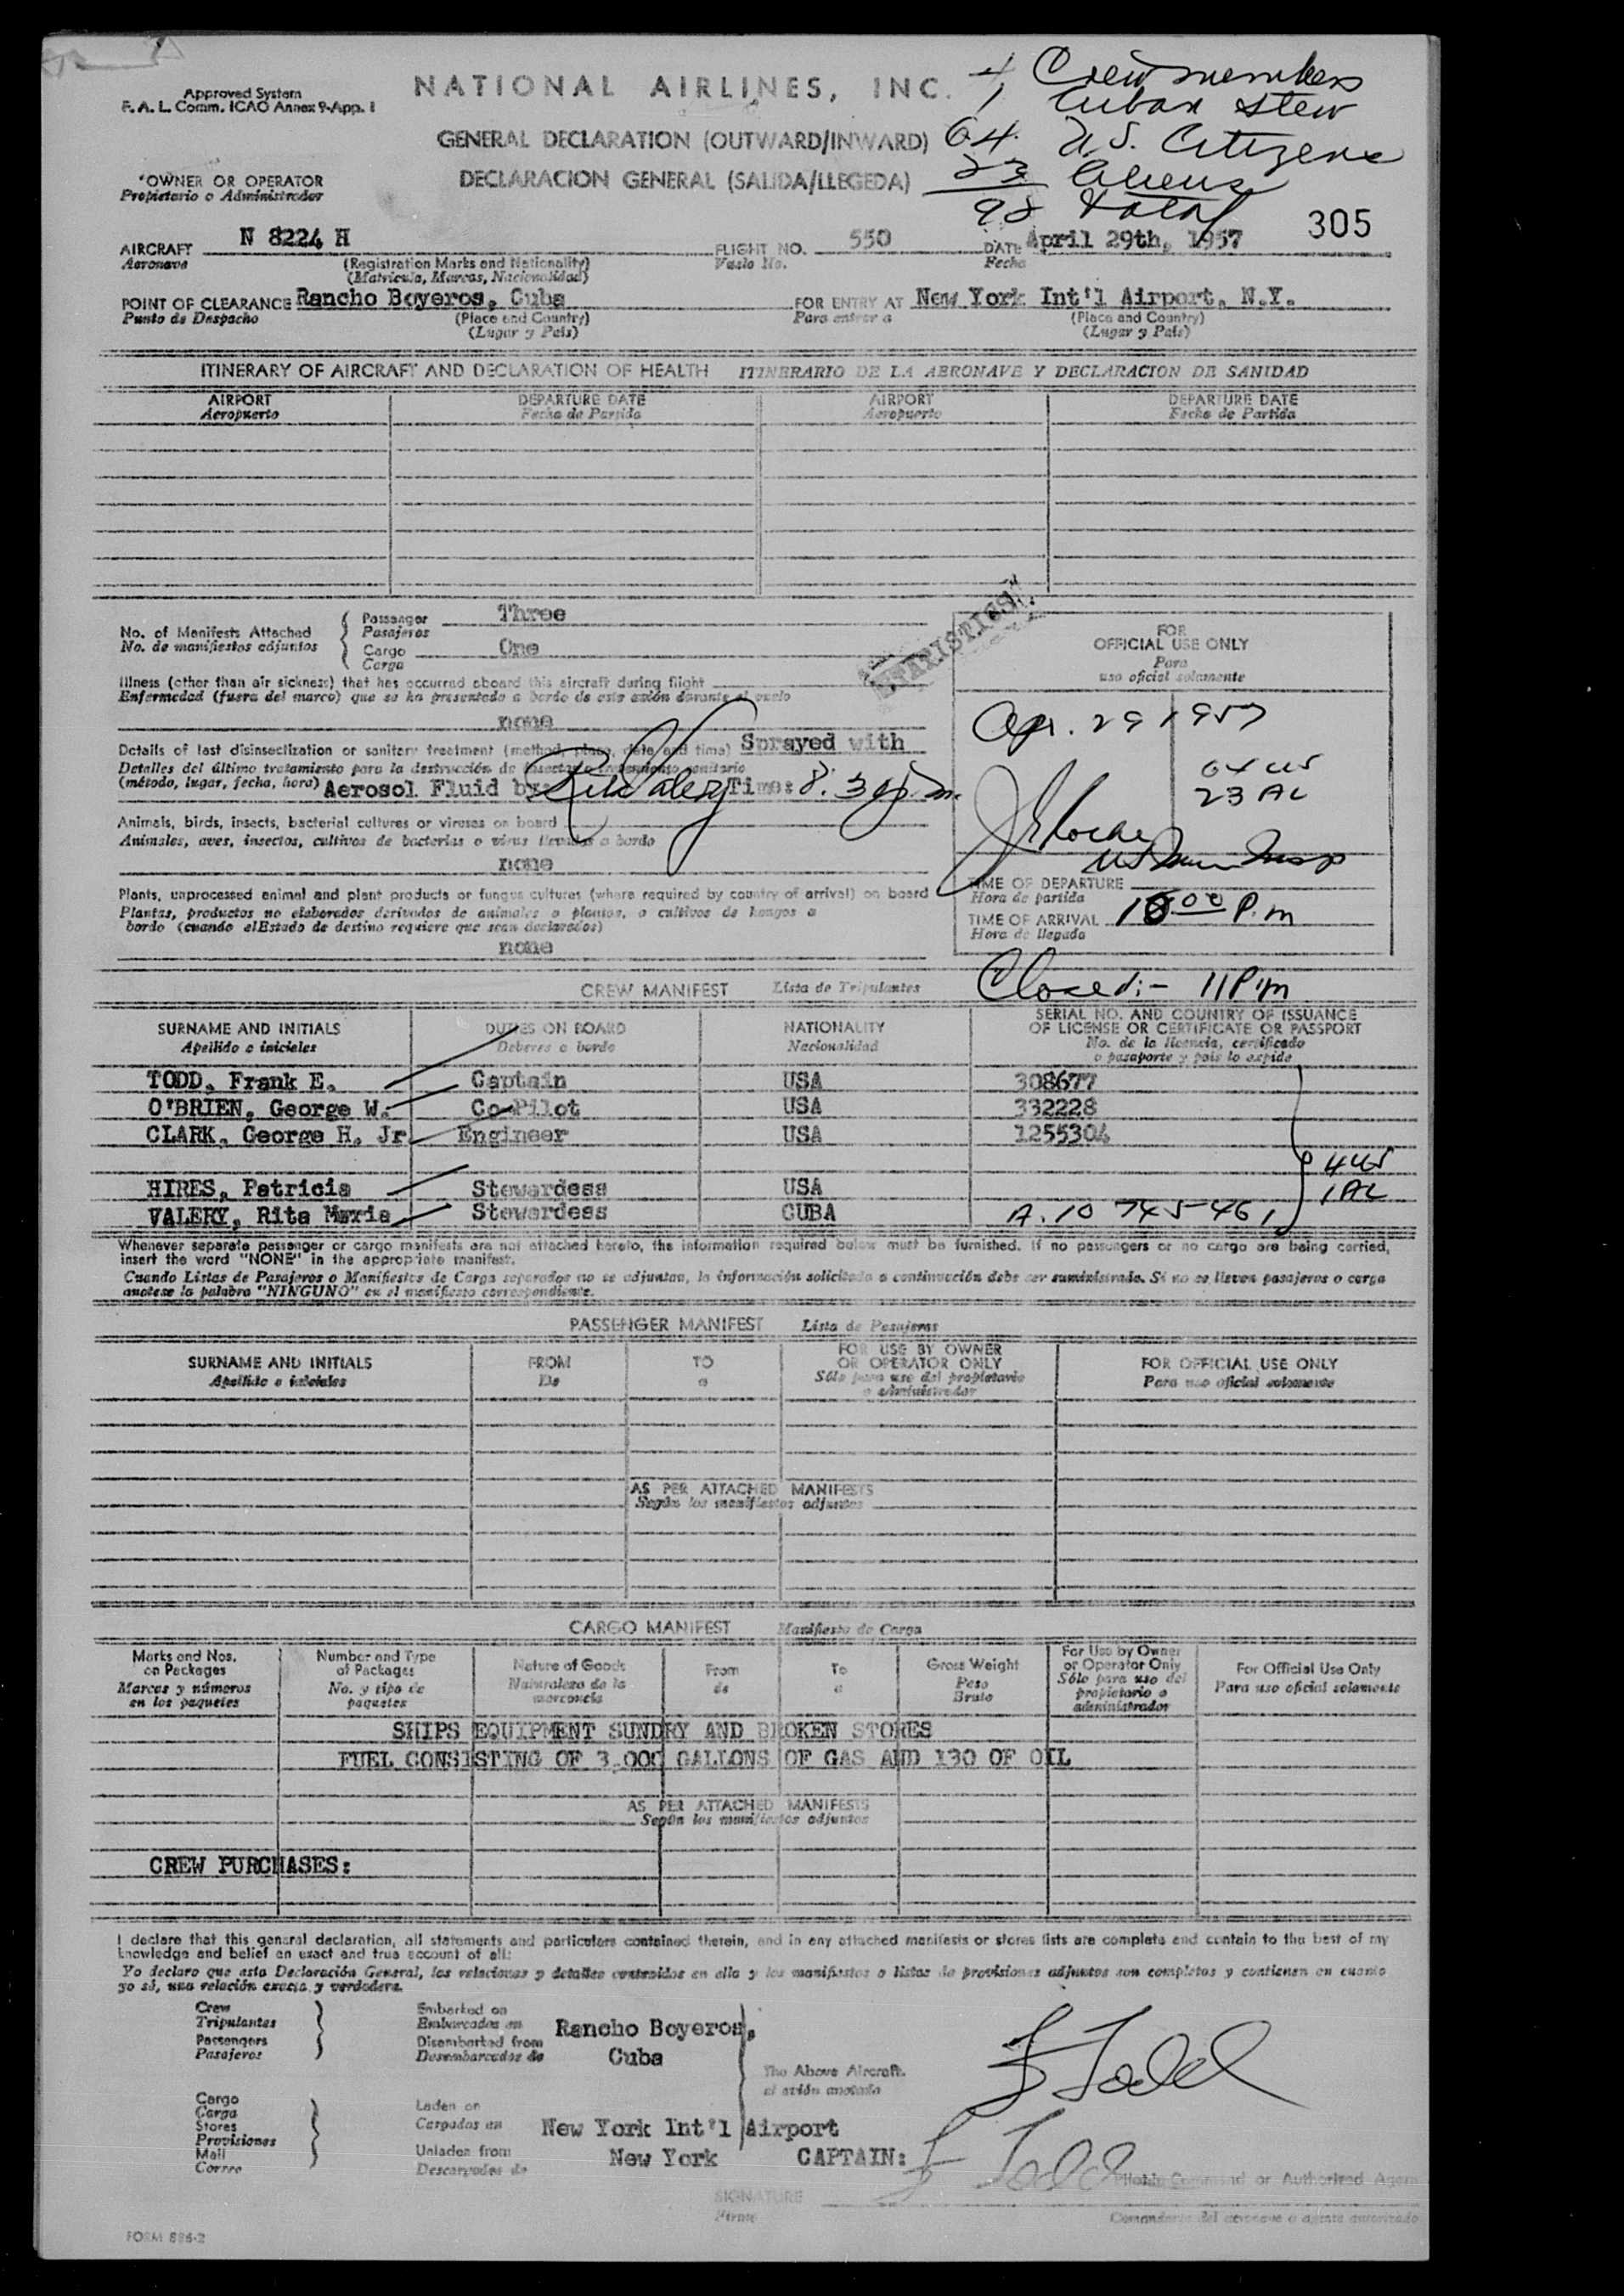 4 Crew members
NATIONAL AIRLINES, INC.
1 Cuban Stew
Approved System
F. A. L. Comm. ICAO Annex 9-App. 1
64 U.S. Citizens
GENERAL DECLARATION (OUTWARD/INWARD)
23 Aliens
*OWNER OR OPERATOR
DECLARACION GENERAL (SALIDA/LLEGEDA)
Propietario o Administrador
total
305
AIRCRAFT N 8224 H FLIGHT NO. 550 DATE April 29th, 1957
Aeronave (Registration Marks and Nationality) Vuelo No. Fecha
(Matricula, Marcas, Nacionalidad)
POINT OF CLEARANCE Rancho Boyeros, Cuba FOR ENTRY AT New York Int'l Airport, N.Y.
Punto de Despacho (Place and Country) Para entrar a (Place and Country)
(Lugar y País) (Lugar y País)
ITINERARY OF AIRCRAFT AND DECLARATION OF HEALTH ITINERARIO DE LA AERONAVE Y DECLARACION DE SANIDAD
AIRPORT DEPARTURE DATE AIRPORT DEPARTURE DATE
Aeropuerto Fecha de Partida Aeropuerto Fecha de Partida
STATISTICS
No. of Manifests Attached Passenger Three
No. de manifiestos adjuntos Pasajeros
Cargo One
Carga
FOR
OFFICIAL USE ONLY
Para
uso oficial solamente
Illness (other than air sickness) that has occurred aboard this aircraft during flight
Enfermedad (fuera del mareo) que se ha presentado a bordo de este avión durante el vuelo
none
Apr. 29 1957
Details of last disinsectization or sanitary treatment (method, place, date and time) Sprayed with
Detalles del último tratamiento para la destrucción de insectos o tratamiento sanitario
(método, lugar, fecha, hora) Aerosol Fluid by: Rita Valery Time: 8:30 p.m.
64 US
23 AL
Animals, birds, insects, bacterial cultures or viruses on board
Animales, aves, insectos, cultivos de bacterias o virus llevados a bordo
none
Plants, unprocessed animal and plant products or fungus cultures (where required by country of arrival) on board
Plantas, productos no elaborados derivados de animales o plantas, o cultivos de hongos a
bordo (cuando el Estado de destino requiere que sean declarados)
none
TIME OF DEPARTURE
Hora de partida
TIME OF ARRIVAL 10 00 P.m
Hora de llegada
Closed:- 11 P.m
CREW MANIFEST Lista de Tripulantes
SURNAME AND INITIALS DUTIES ON BOARD NATIONALITY SERIAL NO. AND COUNTRY OF ISSUANCE
OF LICENSE OR CERTIFICATE OR PASSPORT
Apellido e iniciales Deberes a bordo Nacionalidad No. de la licencia, certificado
o pasaporte y país lo expide
TODD, Frank E. Captain USA 308677
O'BRIEN, George W. Co-Pilot USA 332228
CLARK, George H. Jr Engineer USA 1255304
4 US
HIRES, Patricia Stewardess USA
1 AL
VALERY, Rita Maria Stewardess CUBA A.10 745-461
Whenever separate passenger or cargo manifests are not attached hereto, the information required below must be furnished. If no passengers or no cargo are being carried,
insert the word "NONE" in the appropriate manifest.
Cuando Listas de Pasajeros o Manifiestos de Carga separados no se adjuntan, la información solicitada a continuación debe ser suministrada. Si no se llevan pasajeros o carga
anotese la palabra "NINGUNO" en el manifiesto correspondiente.
PASSENGER MANIFEST Lista de Pasajeros
SURNAME AND INITIALS FROM TO FOR USE BY OWNER
OR OPERATOR ONLY FOR OFFICIAL USE ONLY
Apellido e iniciales De a Sólo para uso del propietario
o administrador Para uso oficial solamente
AS PER ATTACHED MANIFESTS
Según los manifiestos adjuntos
CARGO MANIFEST Manifiesto de Carga
Marks and Nos.
on Packages
Marcas y números
en los paquetes
Number and Type
of Packages
No. y tipo de
paquetes
Nature of Goods
Naturaleza de la
mercancía
From
de
To
a
Gross Weight
Peso
Bruto
For Use by Owner
or Operator Only
Sólo para uso del
propietario o
administrador
For Official Use Only
Para uso oficial solamente
SHIPS EQUIPMENT SUNDRY AND BROKEN STORES
FUEL CONSISTING OF 3,000 GALLONS OF GAS AND 130 OF OIL
AS PER ATTACHED MANIFESTS
Según los manifiestos adjuntos
CREW PURCHASES:
I declare that this general declaration, all statements and particulars contained therein, and in any attached manifests or stores lists are complete and contain to the best of my
knowledge and belief an exact and true account of all:
Yo declaro que esta Declaración General, las relaciones y detalles contenidos en ella y los manifiestos o listas de provisiones adjuntos son completos y contienen en cuanto
yo sé, una relación exacta y verdadera.
Crew
Tripulantes
Passengers
Pasajeros
Embarked on
Embarcados en Rancho Boyeros,
Disembarked from
Desembarcados de Cuba
The Above Aircraft.
el avión anotado
F Todd
Cargo
Carga
Stores
Provisiones
Mail
Correo
Laden on
Cargados en New York Int'l Airport
Unladen from New York
Descargados de
CAPTAIN: F Todd
Pilot in Command or Authorized Agent
SIGNATURE
Firma Comandante del aeronave o agente autorizado
FORM 886-2